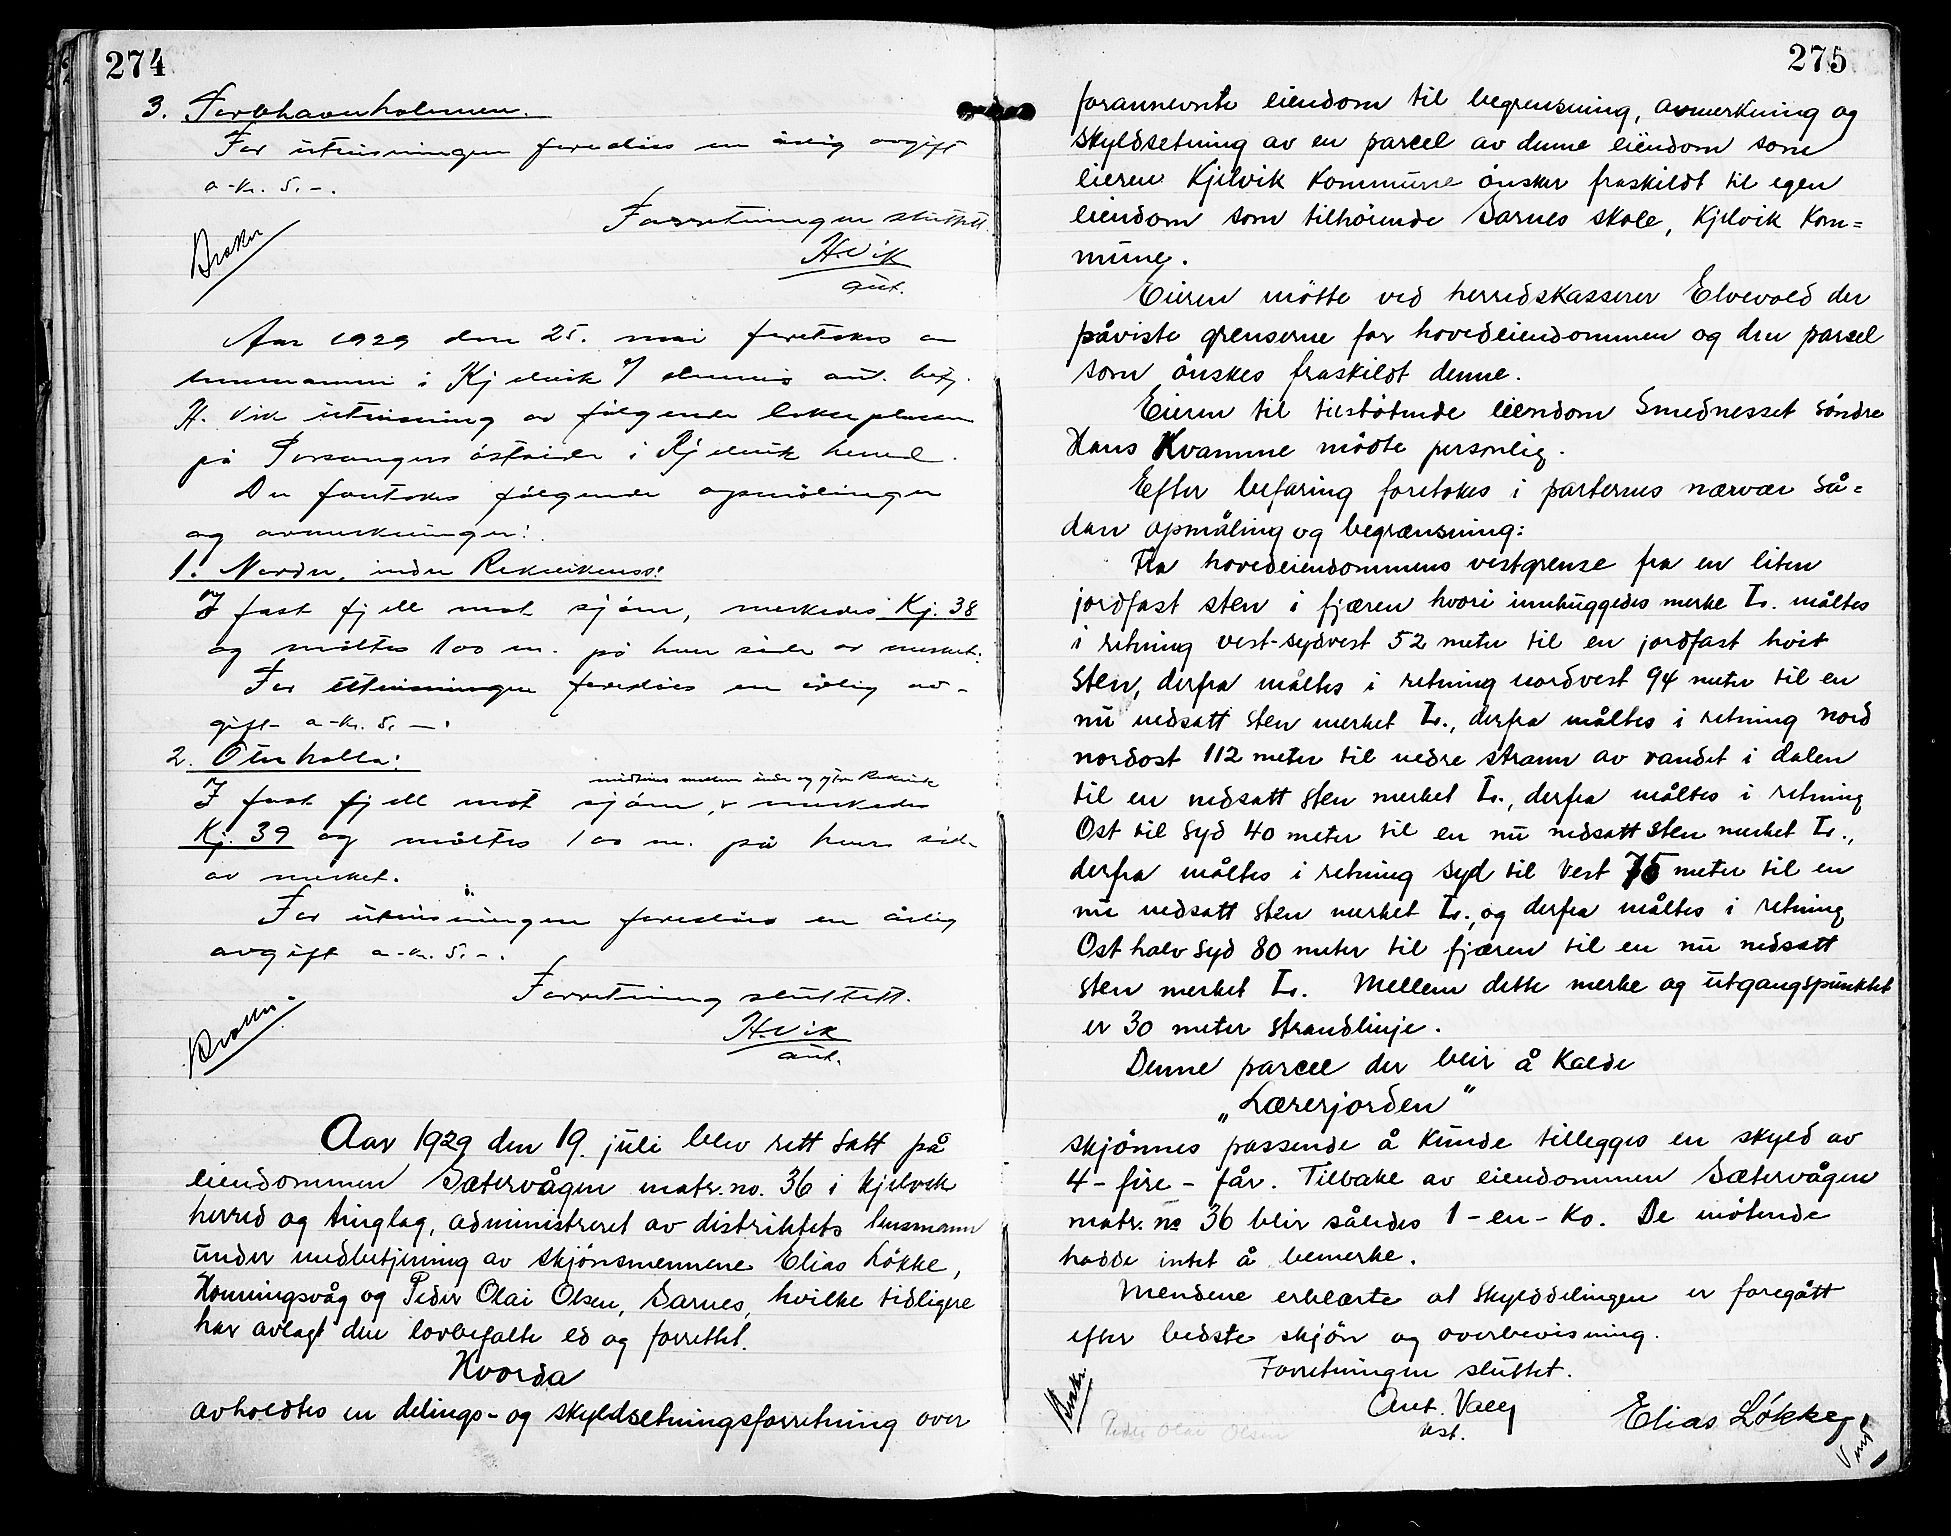 274
3. Torvhavnholmen.
For utvisningen foredles en årlig avgift
a-kr. 5.-.
Forretningen sluttet.
H. Vik
aut.
Aar 1929 den 25. mai foretokes av
lensmannen i Kjelvik v/ dennes aut. betj.
H. Vik utvisning av følgende lakseplasser
på Porsangers østside i Kjelvik herred.
Der foretokes følgende opmålinger
og avmerkninger:
1. Nordre, indre Rekvikenes:
I fast fjell mot sjøen, merkedes Kj. 38
og måltes 100 m. på hver side av merket.
For utvisningen foredles en årlig av-
gift a-kr. 5.-.
2. Oterhalla:
midtveis mellem indre og ytre Rekvik
I fast fjell mot sjøen, merkedes
Kj. 39 og måltes 100 m. på hver side
av merket.
For utvisningen foredles en årlig
avgift a-kr. 5.-.
Forretning sluttet.
H. Vik
aut.
Aar 1929 den 19. juli blev rett satt på
eiendommen Sætervågen matr. no. 36 i Kjelvik
herred og tinglag, administreret av distriktets lensmann
under medbetjening av skjønsmennene Elias Løkke,
Honningsvåg og Peder Olai Olsen, Sarnes, hvilke tidligere
har avlagt den lovbefalte ed og forrettet.
Hvorda
avholdtes en delings- og skyldsetningsforretning over
275
forannevnte eiendom til begrensning, avmerkning og
skyldsetning av en parcel av denne eiendom som
eieren Kjelvik Kommune ønsker fraskildt til egen
eiendom som tilhørende Sarnes skole, Kjelvik Kom=
mune.
Eieren møtte ved herredskasserer Elvevold der
påviste grenserne for hovedeiendommen og den parsel
som ønskes fraskildt denne.
Eieren til tilstøtende eiendom Smednesset søndre
Hans Kvamme mødte personlig.
Efter befaring foretokes i parternes nærvær så=
dan opmåling og begrænsning:
Fra hovedeiendommens vestgrense fra en liten
jordfast sten i fjæren hvori innhuggedes merke L. måltes
i retning vest-sydvest 52 meter til en jordfast hvit
sten, derfra måltes i retning nordvest 94 meter til en
nu nedsatt sten merket L., derfra måltes i retning nord
nordost 112 meter til nedre strann av vandet i dalen
til en nedsatt sten merket L., derfra måltes i retning
Ost til syd 40 meter til en nu nedsatt sten merket L.,
derfra måltes i retning syd til Vest 75 meter til en
nu nedsatt sten merket L., og derfra måltes i retning
Ost halv syd 80 meter til fjæren til en nu nedsatt
sten merket L. Mellem dette merke og utgangspunktet
er 30 meter strandlinje.
Denne parcel der blir å kalde
„Lærerjorden“
skjønnes passende å kunde tillegges en skyld av
4 - fire - får. Tilbake av eiendommen Sætervågen
matr. no 36 blir således 1 - en - ko. De møtende
hadde intet å bemerke.
Mendene erklærte at skylddelingen er foregått
efter bedste skjøn og overbevisning.
Forretningen sluttet.
Ant. Valey
Elias Løkke
Peder Olai Olsen
Vend!